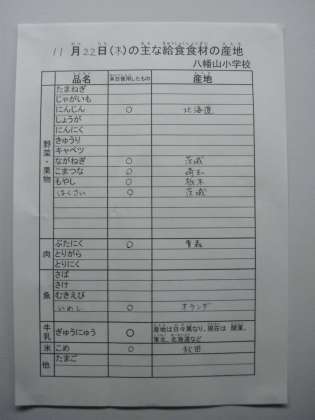 11月22日(木)の主な給食食材の産地
八幡山小学校
品名 本日使用したもの 産地
野菜・果物
たまねぎ
じゃがいも
にんじん ○ 北海道
しょうが
にんにく
きゅうり
キャベツ
ながねぎ ○ 茨城
こまつな ○ 埼玉
もやし ○ 栃木
はくさい ○ 茨城
肉
ぶたにく ○ 青森
とりがら
とりにく
魚
さば
さけ
むきえび
○ オランダ
牛乳 ぎゅうにゅう ○ 産地は日々異なり、現在は 関東、東北、北海道など
米 こめ ○ 秋田
他 たまご